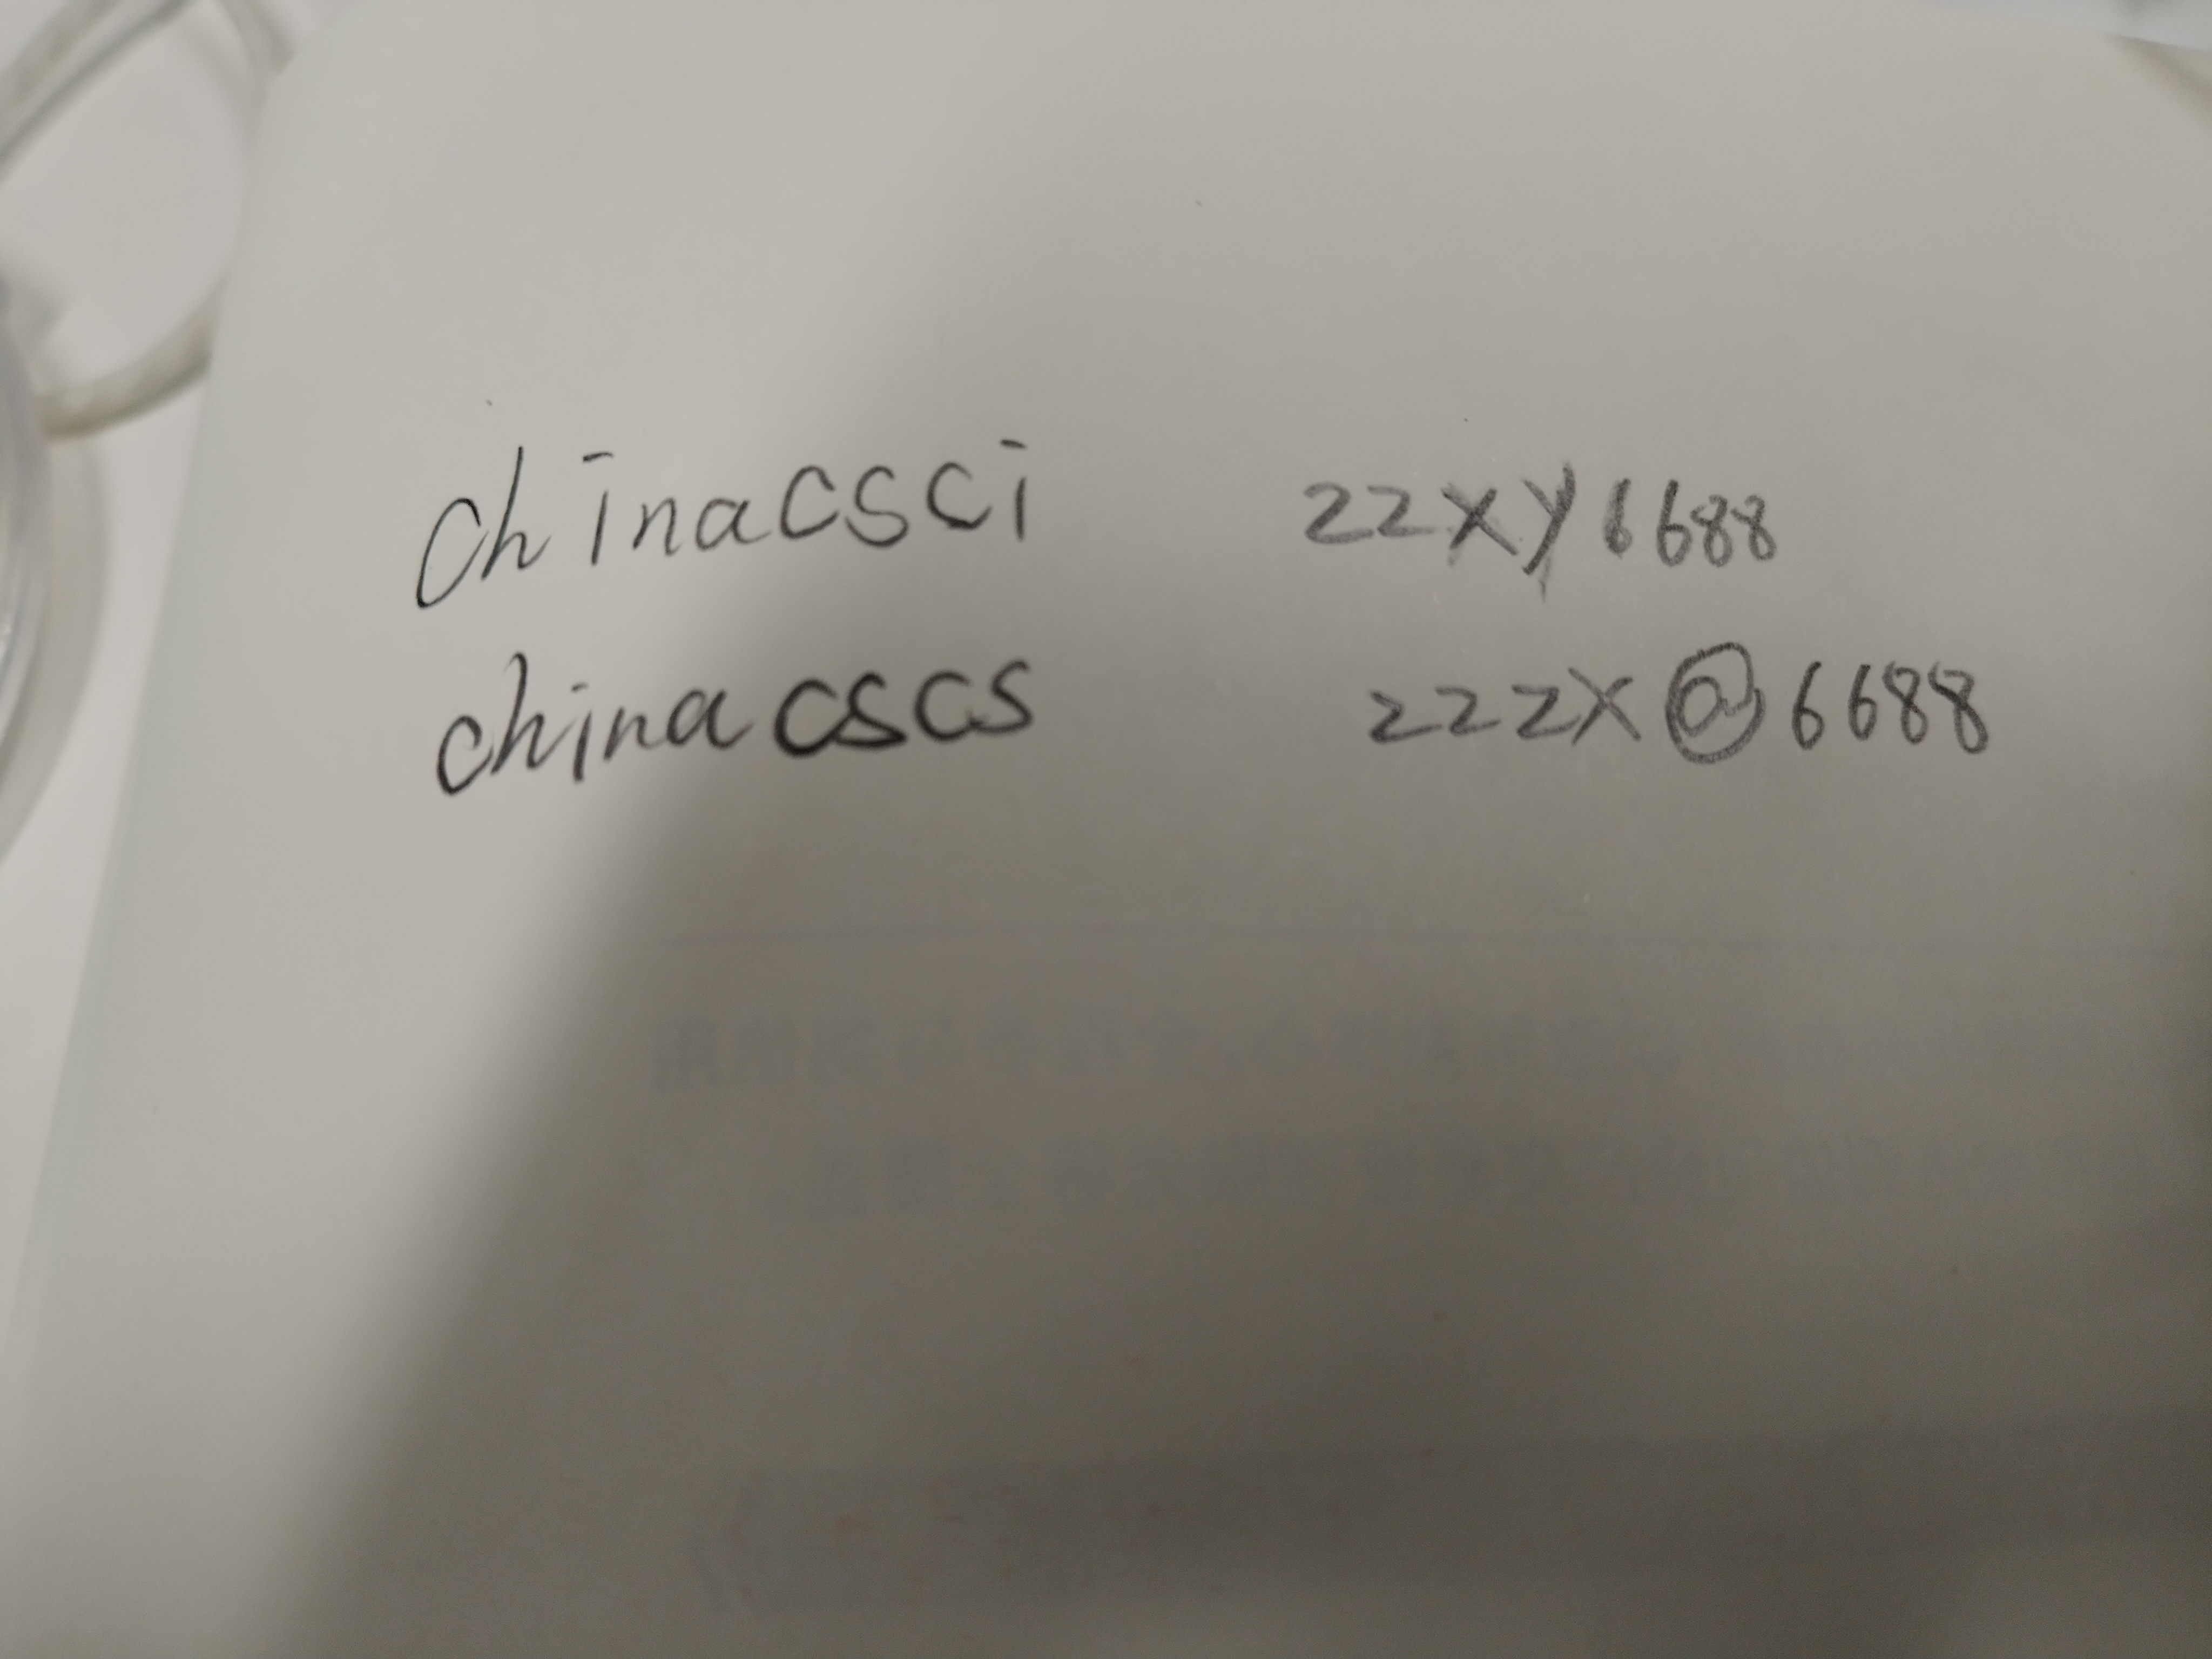 chinacsci 22xy6688
chinacscs 222x@6688